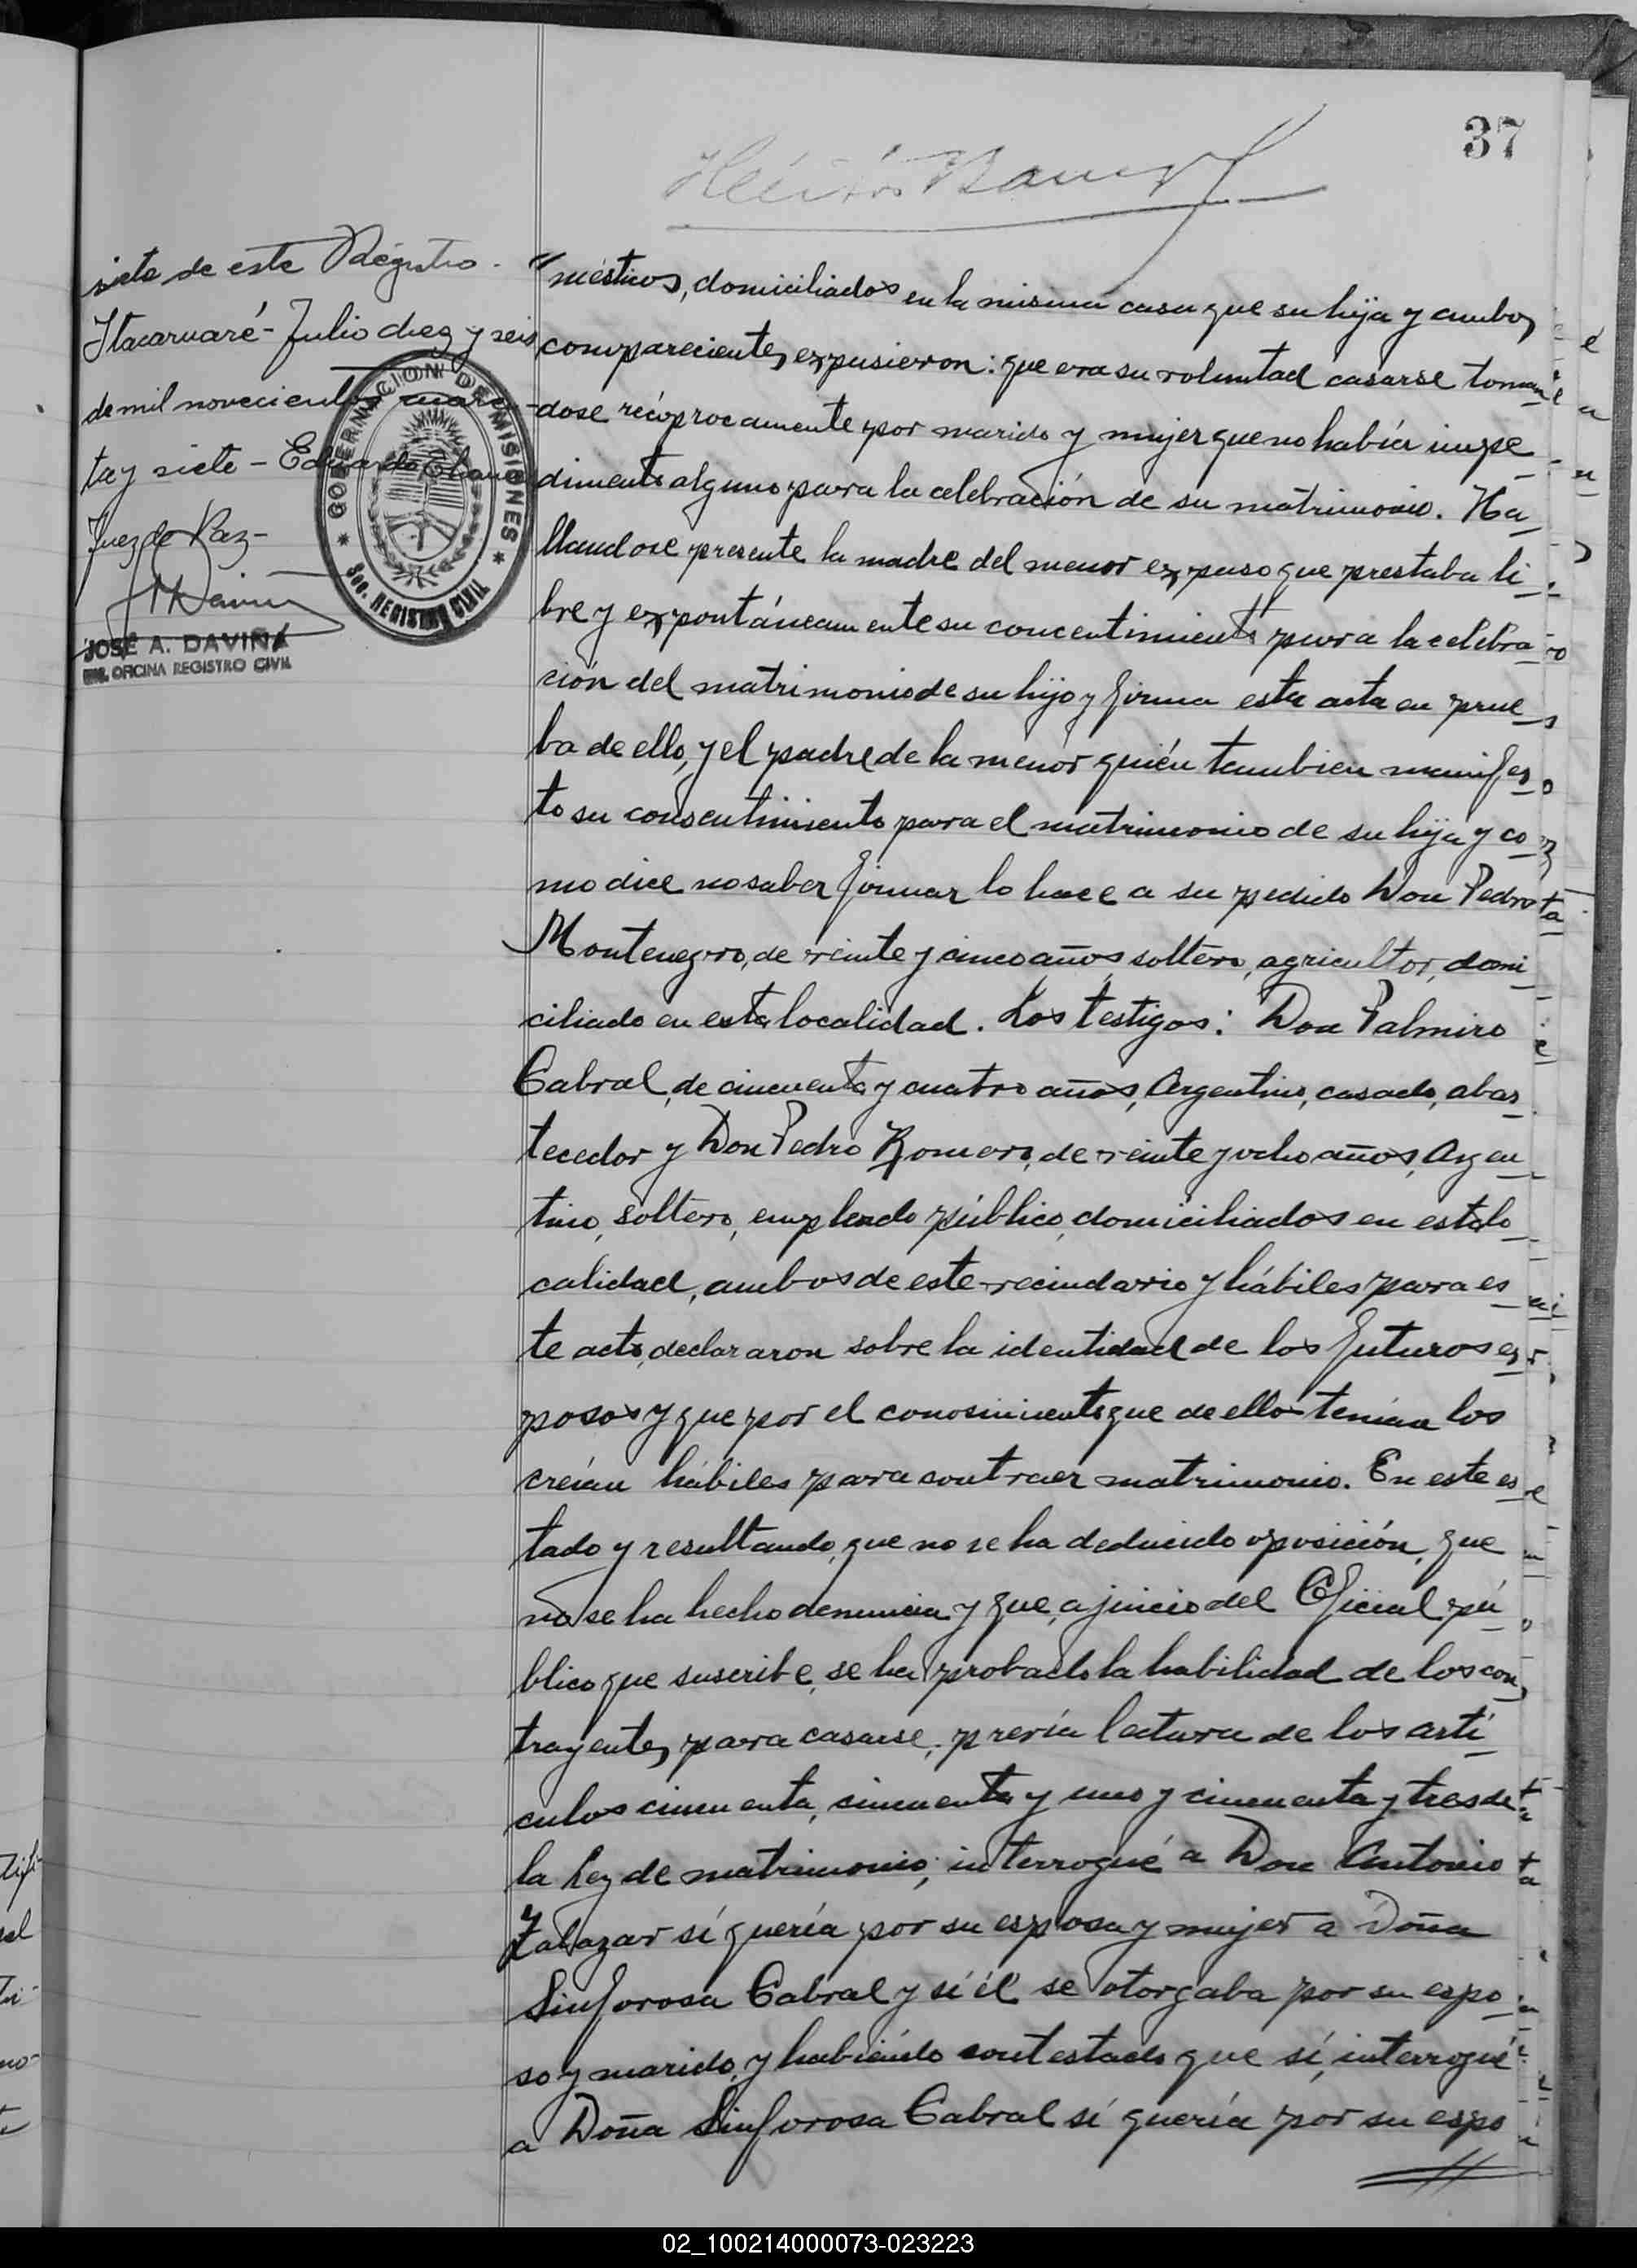 37
siete de este Registro.
Itacaruaré - Julio diez y seis
de mil novecientos cuaren-
ta y siete - Eduardo
Juez de Paz -
GOBERNACION DE MISIONES
Sec. REGISTRO CIVIL
JOSÉ A. DAVIÑA
ENC. OFICINA REGISTRO CIVIL
"mésticos, domiciliados en la misma casa que su hija y ambos
comparecientes expusieron: que era su voluntad casarse toman
dose recíprocamente por marido y mujer que no había impe
dimento alguno para la celebración de su matrimonio. Ha
llandose presente la madre del menor expuso que prestaba li
bre y expontáneamente su concentimiento para la celebra
ción del matrimonio de su hijo y firma esta acta en prue
ba de ello, y el padre de la menor quién tambien manifes
to su consentimiento para el matrimonio de su hija y co
mo dice no saber firmar lo hace a su pedido Don Pedro
Montenegro, de veinte y cinco años, soltero, agricultor, domi
ciliado en esta localidad. Los testigos: Don Palmiro
Cabral, de cincuenta y cuatro años, Argentino, casado, abas
tecedor y Don Pedro Romero, de veinte y ocho años, Argen
tino, soltero, empleado público, domiciliados en esta lo
calidad, ambos de este vecindario y hábiles para es
te acto, declararon sobre la identidad de los futuros es
posos y que por el conosimiento que de ellos tenían los
creían hábiles para contraer matrimonio. En este es
tado y resultando, que no se ha deducido oposición, que
no se ha hecho denuncia y que, a juicio del Oficial pú
blico que suscribe, se ha probado la habilidad de los con
trayentes para casarse, previa lectura de los artí
culos cincuenta, cincuenta y uno y cincuenta y tres de
la Ley de matrimonio, interrogué a Don Antonio
Zalazar sí quería por su esposa y mujer a Doña
Sinforosa Cabral y sí él se otorgaba por su espo
so y marido, y habiéndo contestado que sí, interrogué
a Doña Sinforosa Cabral sí quería por su espo
02_100214000073-023223